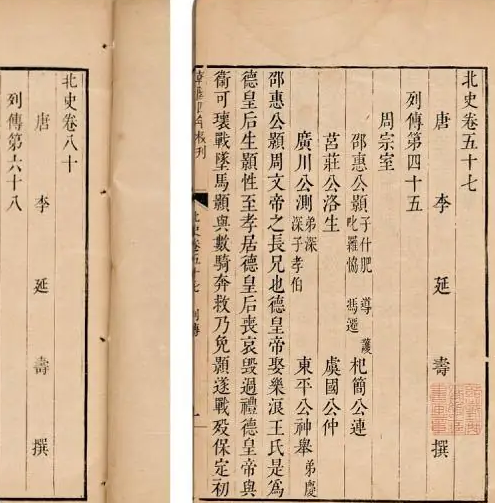 北史卷五十七
唐李延壽撰
列傳第四十五
周宗室
邵惠公顥子什肥 導 護 叱羅協 馮遷 杞簡公連
莒莊公洛生 虞國公仲
廣川公測弟深 深子孝伯 東平公神舉弟慶
邵惠公顥周文帝之長兄也德皇帝娶樂浪王氏是爲
德皇后生顥性至孝居德皇后喪哀毀過禮德皇帝與
衛可瓌戰墜馬顥與數騎奔救乃免顥遂戰歿保定初
北史卷五十七 列傳 一
北史卷八十
唐李延壽撰
列傳第六十八